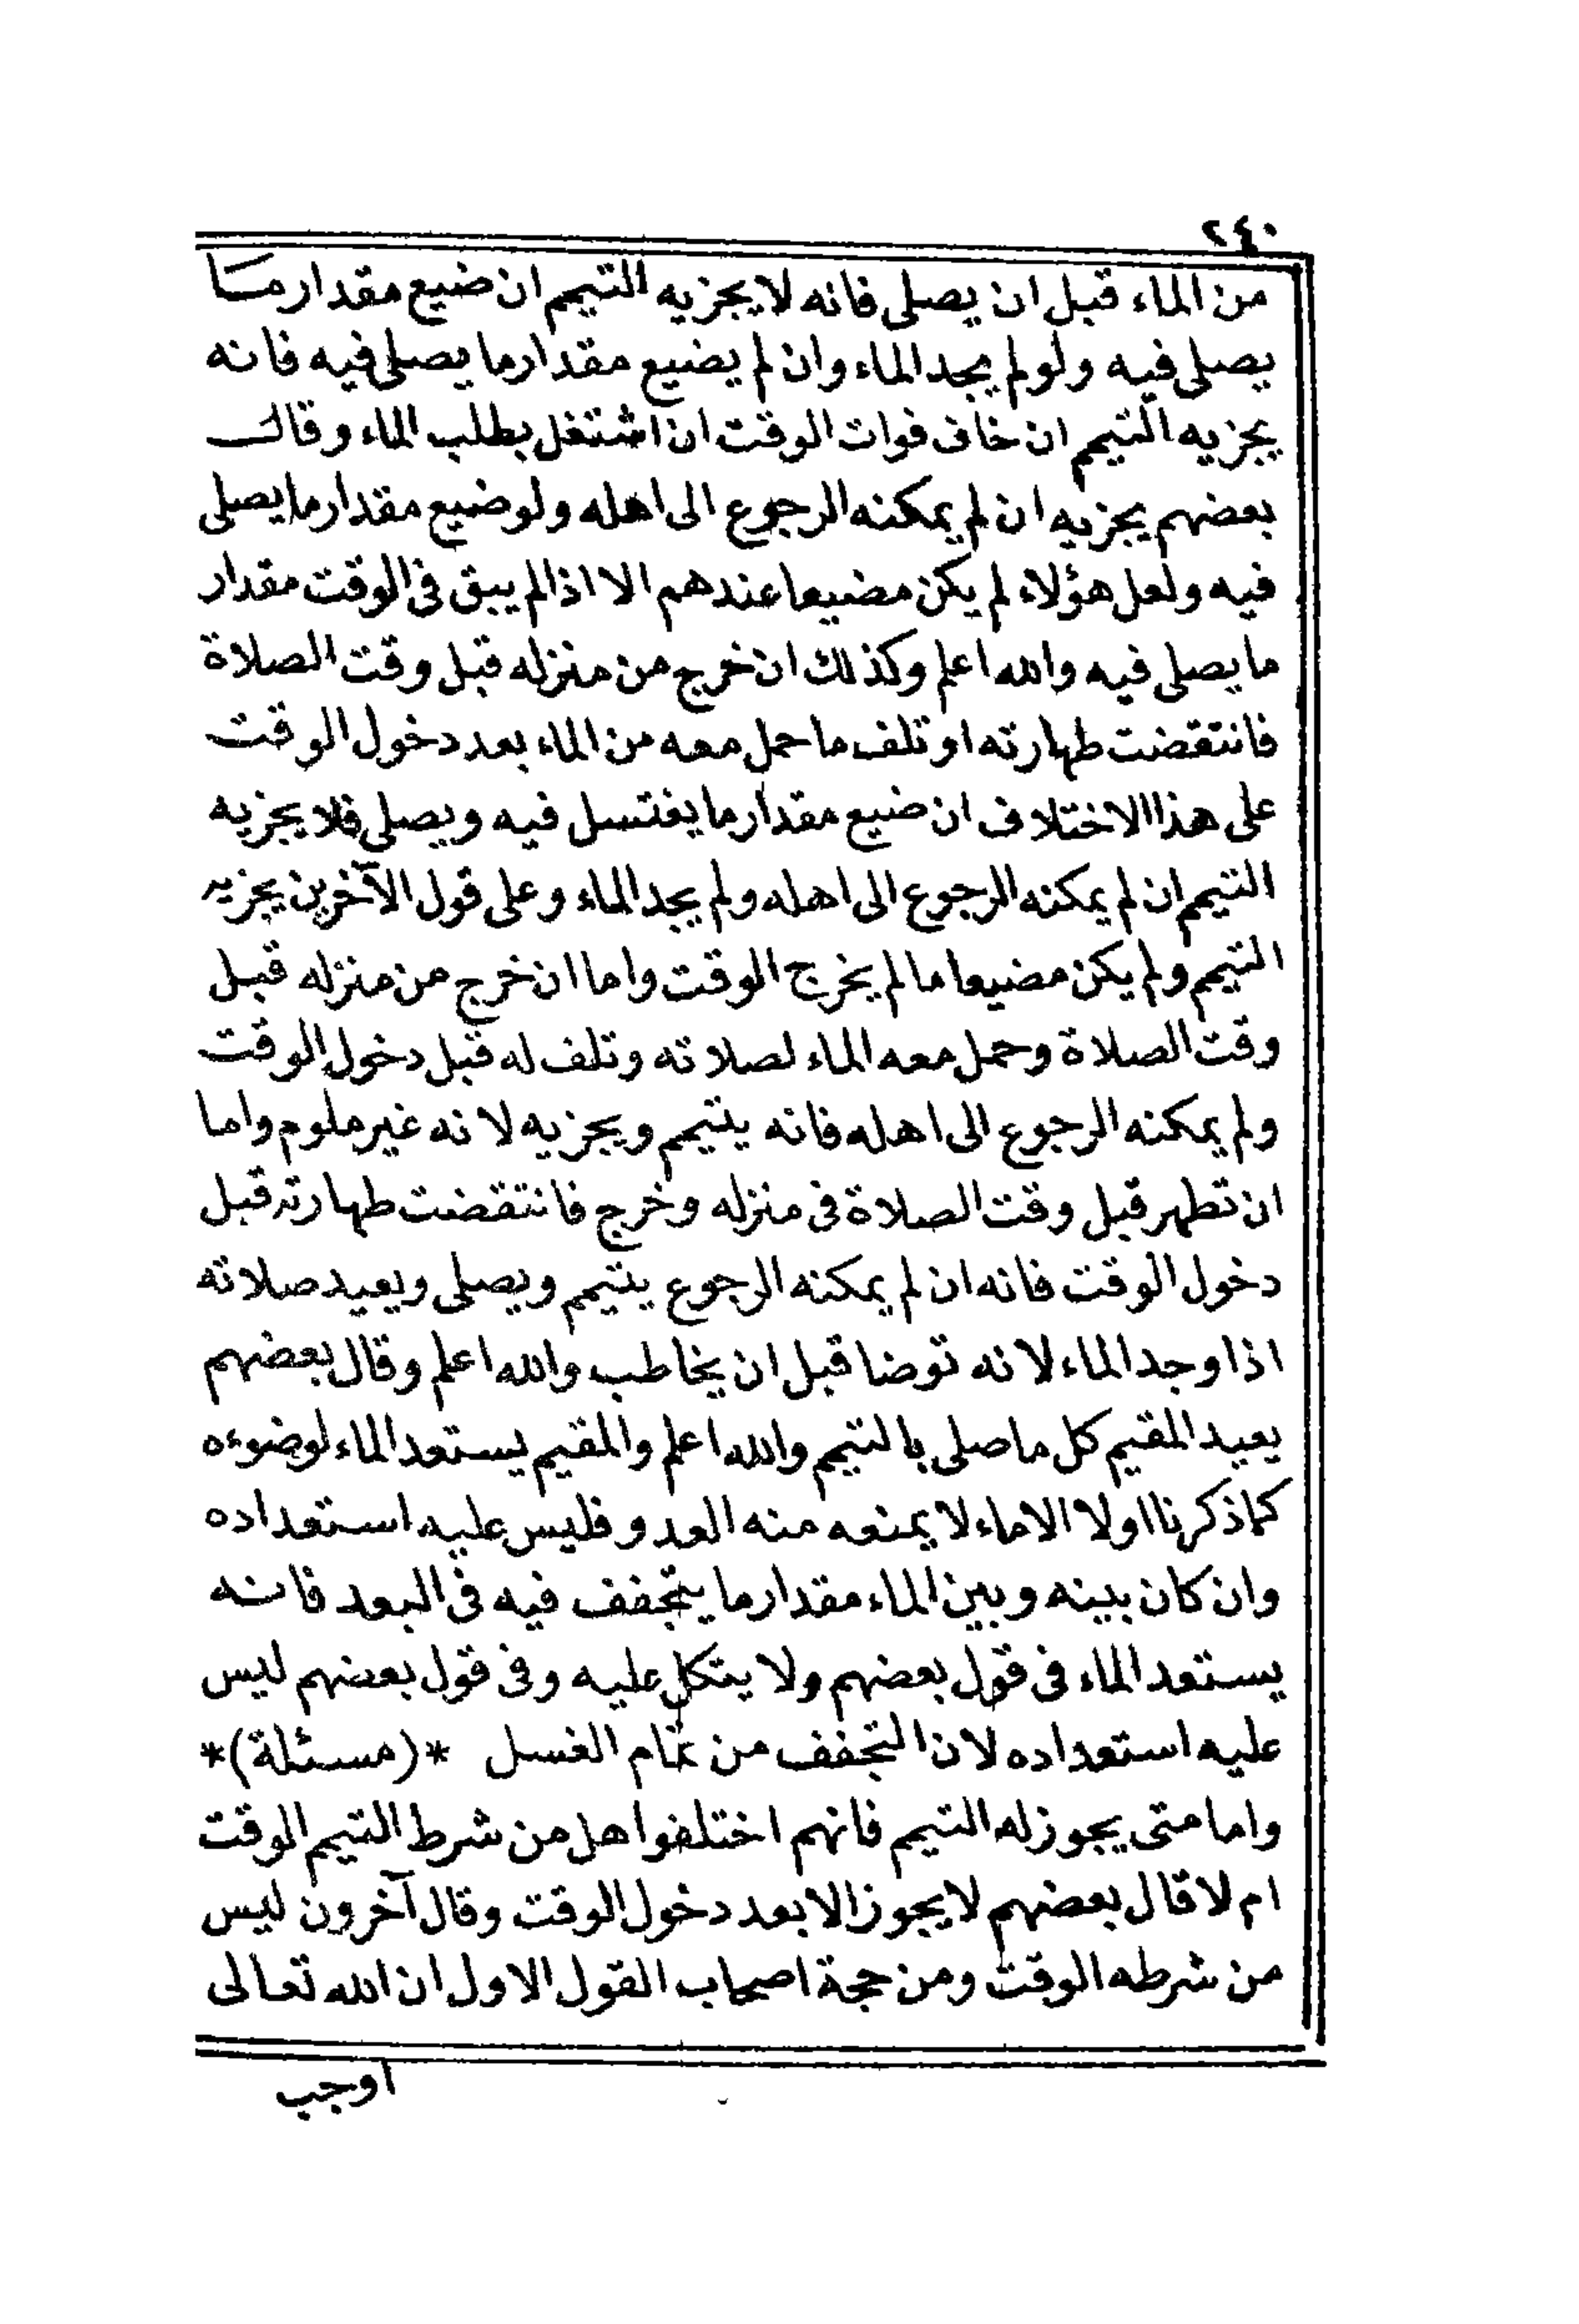 ٢٤٠
من الماء قبل ان يصلى فانه لا يجزيه التيمم ان ضيع مقدار ما
يصلى فيه ولو لم يجد الماء وان لم يضيع مقدار ما يصلى فيه فانه
يجزيه التيمم ان خاف فوات الوقت ان اشتغل بطلب الماء وقال
بعضهم يجزيه ان لم يمكنه الرجوع الى اهله ولو ضيع مقدار ما يصلى
فيه ولعل هؤلاء لم يكن مضيعا عندهم الا اذا لم يبق فى الوقت مقدار
ما يصلى فيه والله اعلم وكذلك ان خرج من منزله قبل وقت الصلاة
فانتقضت طهارته او تلف ما حمل معه من الماء بعد دخول الوقت
على هذا الاختلاف ان ضيع مقدار ما يغتسل فيه ويصلى فلا يجزيه
التيمم ان لم يمكنه الرجوع الى اهله ولم يجد الماء وعلى قول الآخرين يجزيه
التيمم ولم يكن مضيعا ما لم يخرج الوقت واما ان خرج من منزله قبل
وقت الصلاة وحمل معه الماء لصلاته وتلف له قبل دخول الوقت
ولم يمكنه الرجوع الى اهله فانه يتيمم ويجزيه لانه غير ملوم واما
ان تطهر قبل وقت الصلاة فى منزله وخرج فانتقضت طهارته قبل
دخول الوقت فانه ان لم يمكنه الرجوع يتيمم ويصلى ويعيد صلاته
اذا وجد الماء لانه توضا قبل ان يخاطب والله اعلم وقال بعضهم
يعيد المقيم كل ما صلى بالتيمم والله اعلم والمقيم يستعد الماء لوضوءه
كما ذكرنا اولا الا ماء لا يمنعه منه العدو فليس عليه استعداده
وان كان بينه وبين الماء مقدار ما يتجفف فيه فى البعد فانه
يستعد الماء فى قول بعضهم ولا يتكل عليه وفى قول بعضهم ليس
عليه استعداده لان التجفف من تمام الغسل *(مسئلة)*
واما متى يجوز له التيمم فانهم اختلفوا هل من شرط التيمم الوقت
ام لا قال بعضهم لا يجوز الا بعد دخول الوقت وقال آخرون ليس
من شرطه الوقت ومن حجة اصحاب القول الاول ان الله تعالى
اوجب